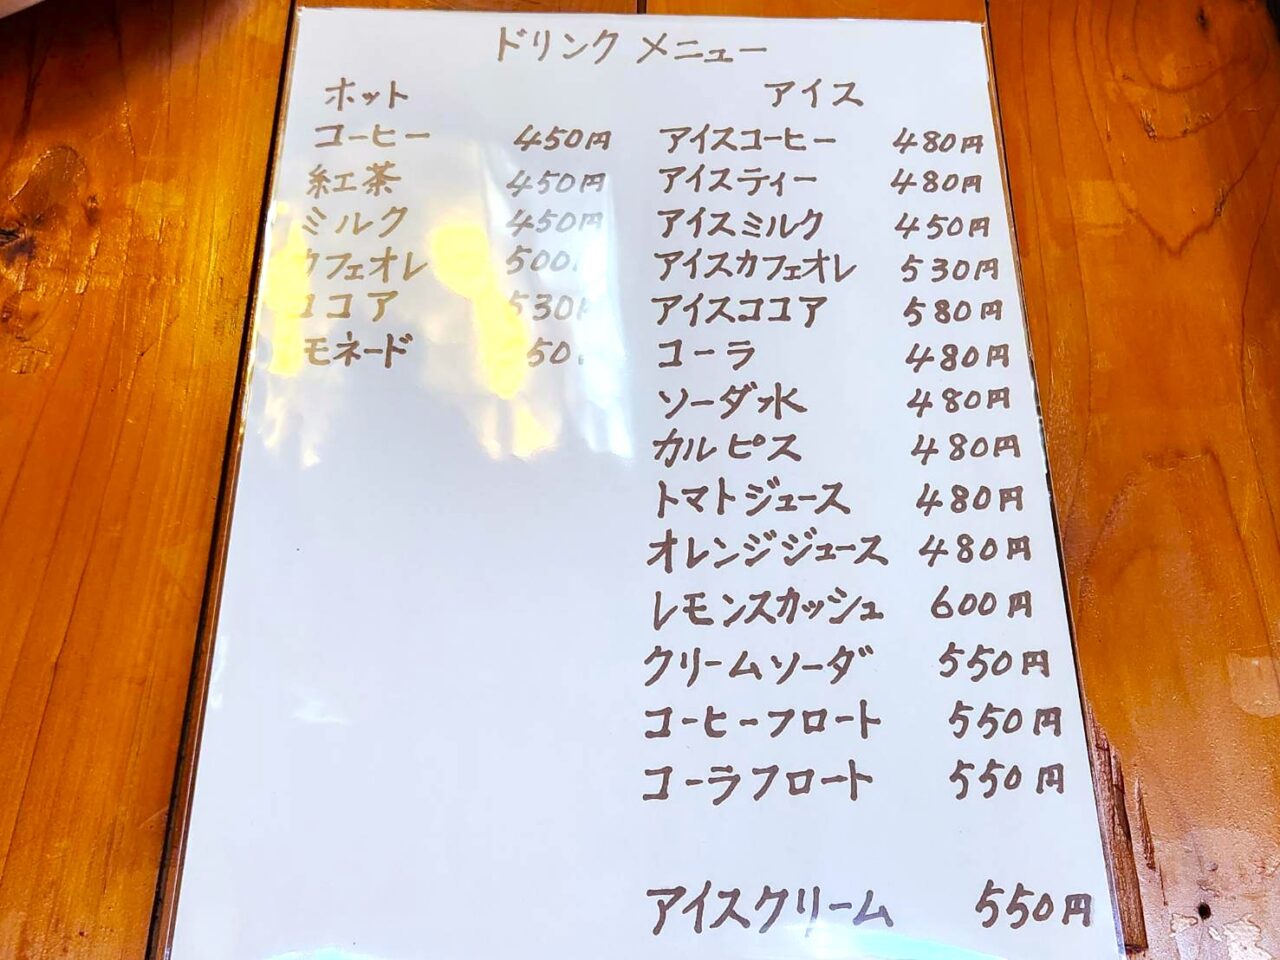 ドリンクメニュー
ホット
コーヒー 450円
紅茶 450円
ミルク 450円
カフェオレ 500
ココア 530
モネード 50
アイス
アイスコーヒー 480円
アイスティー 480円
アイスミルク 450円
アイスカフェオレ 530円
アイスココア 580円
コーラ 480円
ソーダ水 480円
カルピス 480円
トマトジュース 480円
オレンジジュース 480円
レモンスカッシュ 600円
クリームソーダ 550円
コーヒーフロート 550円
コーラフロート 550円
アイスクリーム 550円